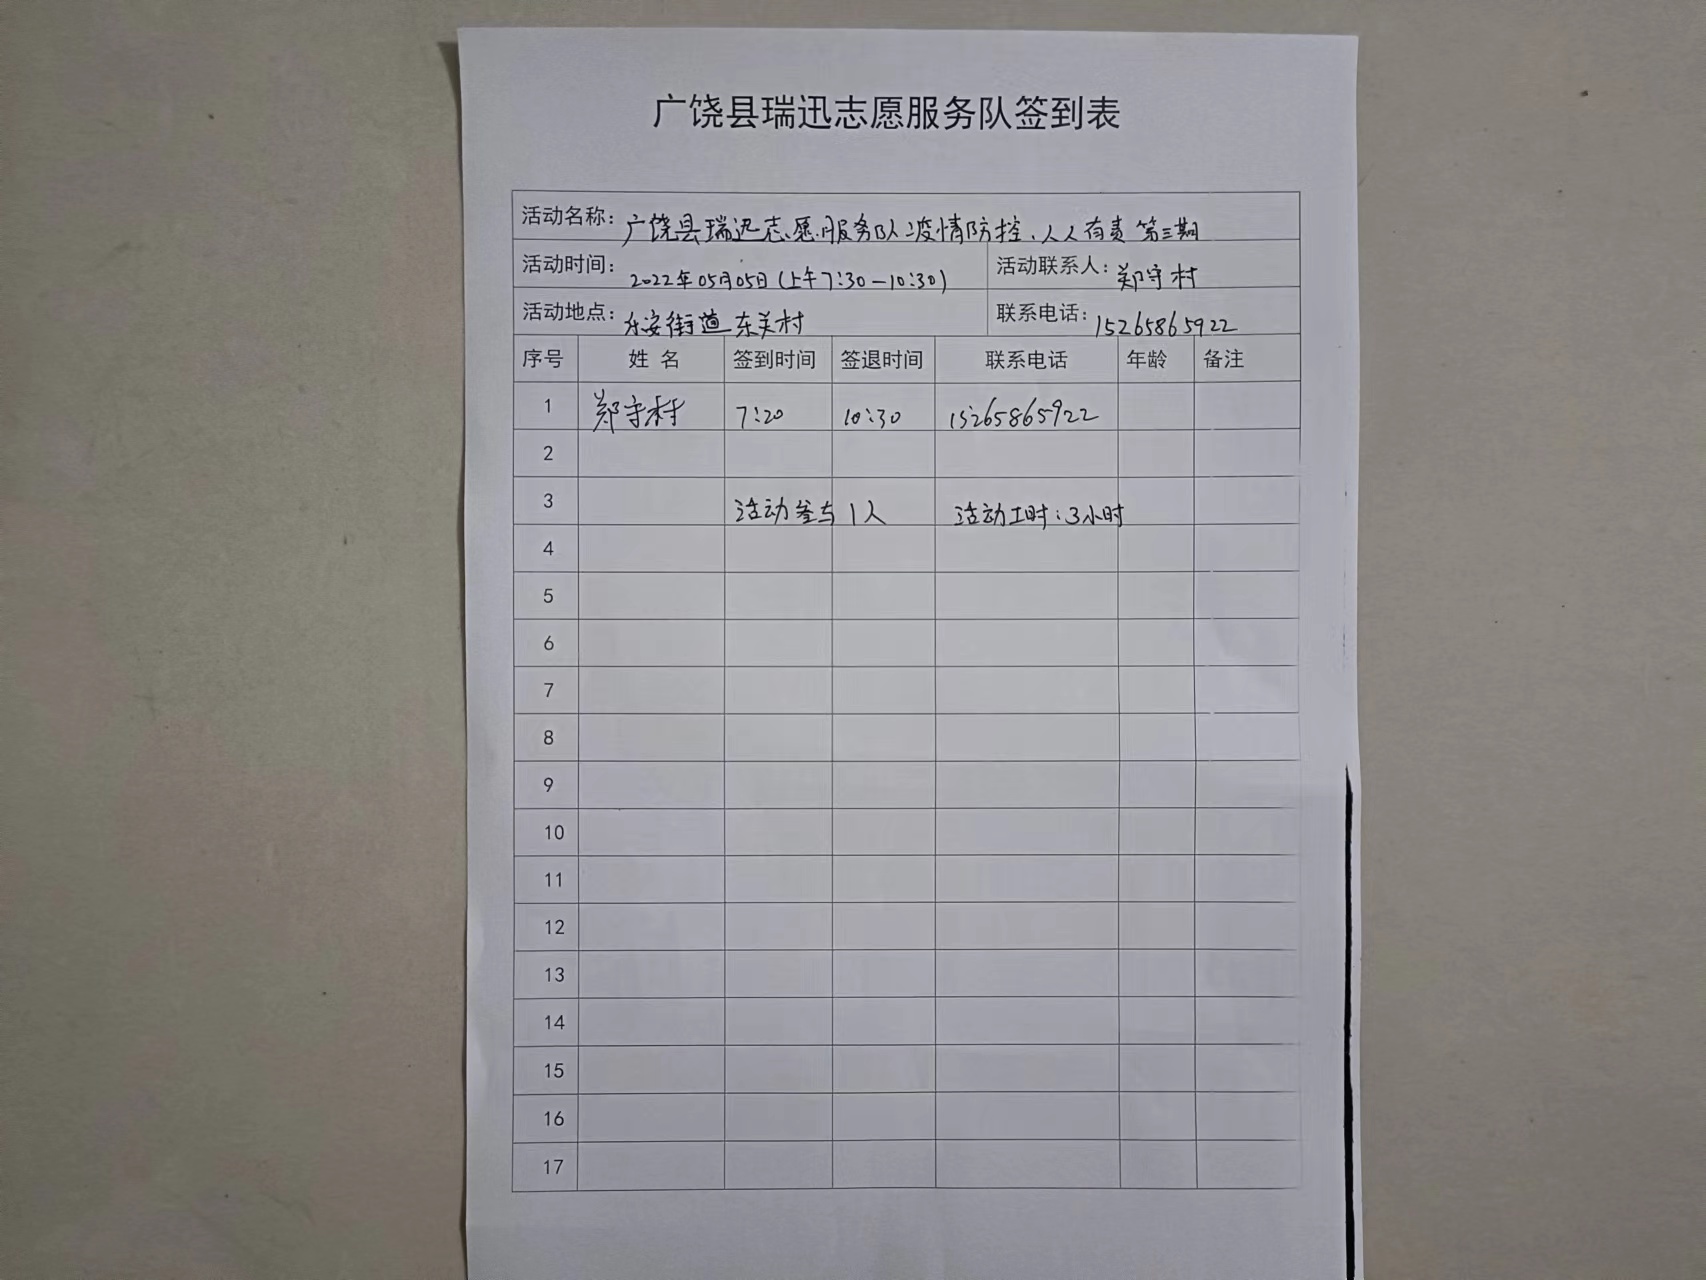 广饶县瑞迅志愿服务队签到表
活动名称：广饶县瑞迅志愿服务队"疫情防控、人人有责 第三期
活动时间：2022年05月05日(上午7:30—10:30) 活动联系人：郑守村
活动地点：乐安街道东关村 联系电话：15265865922
序号 姓 名 签到时间 签退时间 联系电话 年龄 备注
1 郑守村 7:20 10:30 15265865922
2
3 活动参与1人 活动工时：3小时
4
5
6
7
8
9
10
11
12
13
14
15
16
17